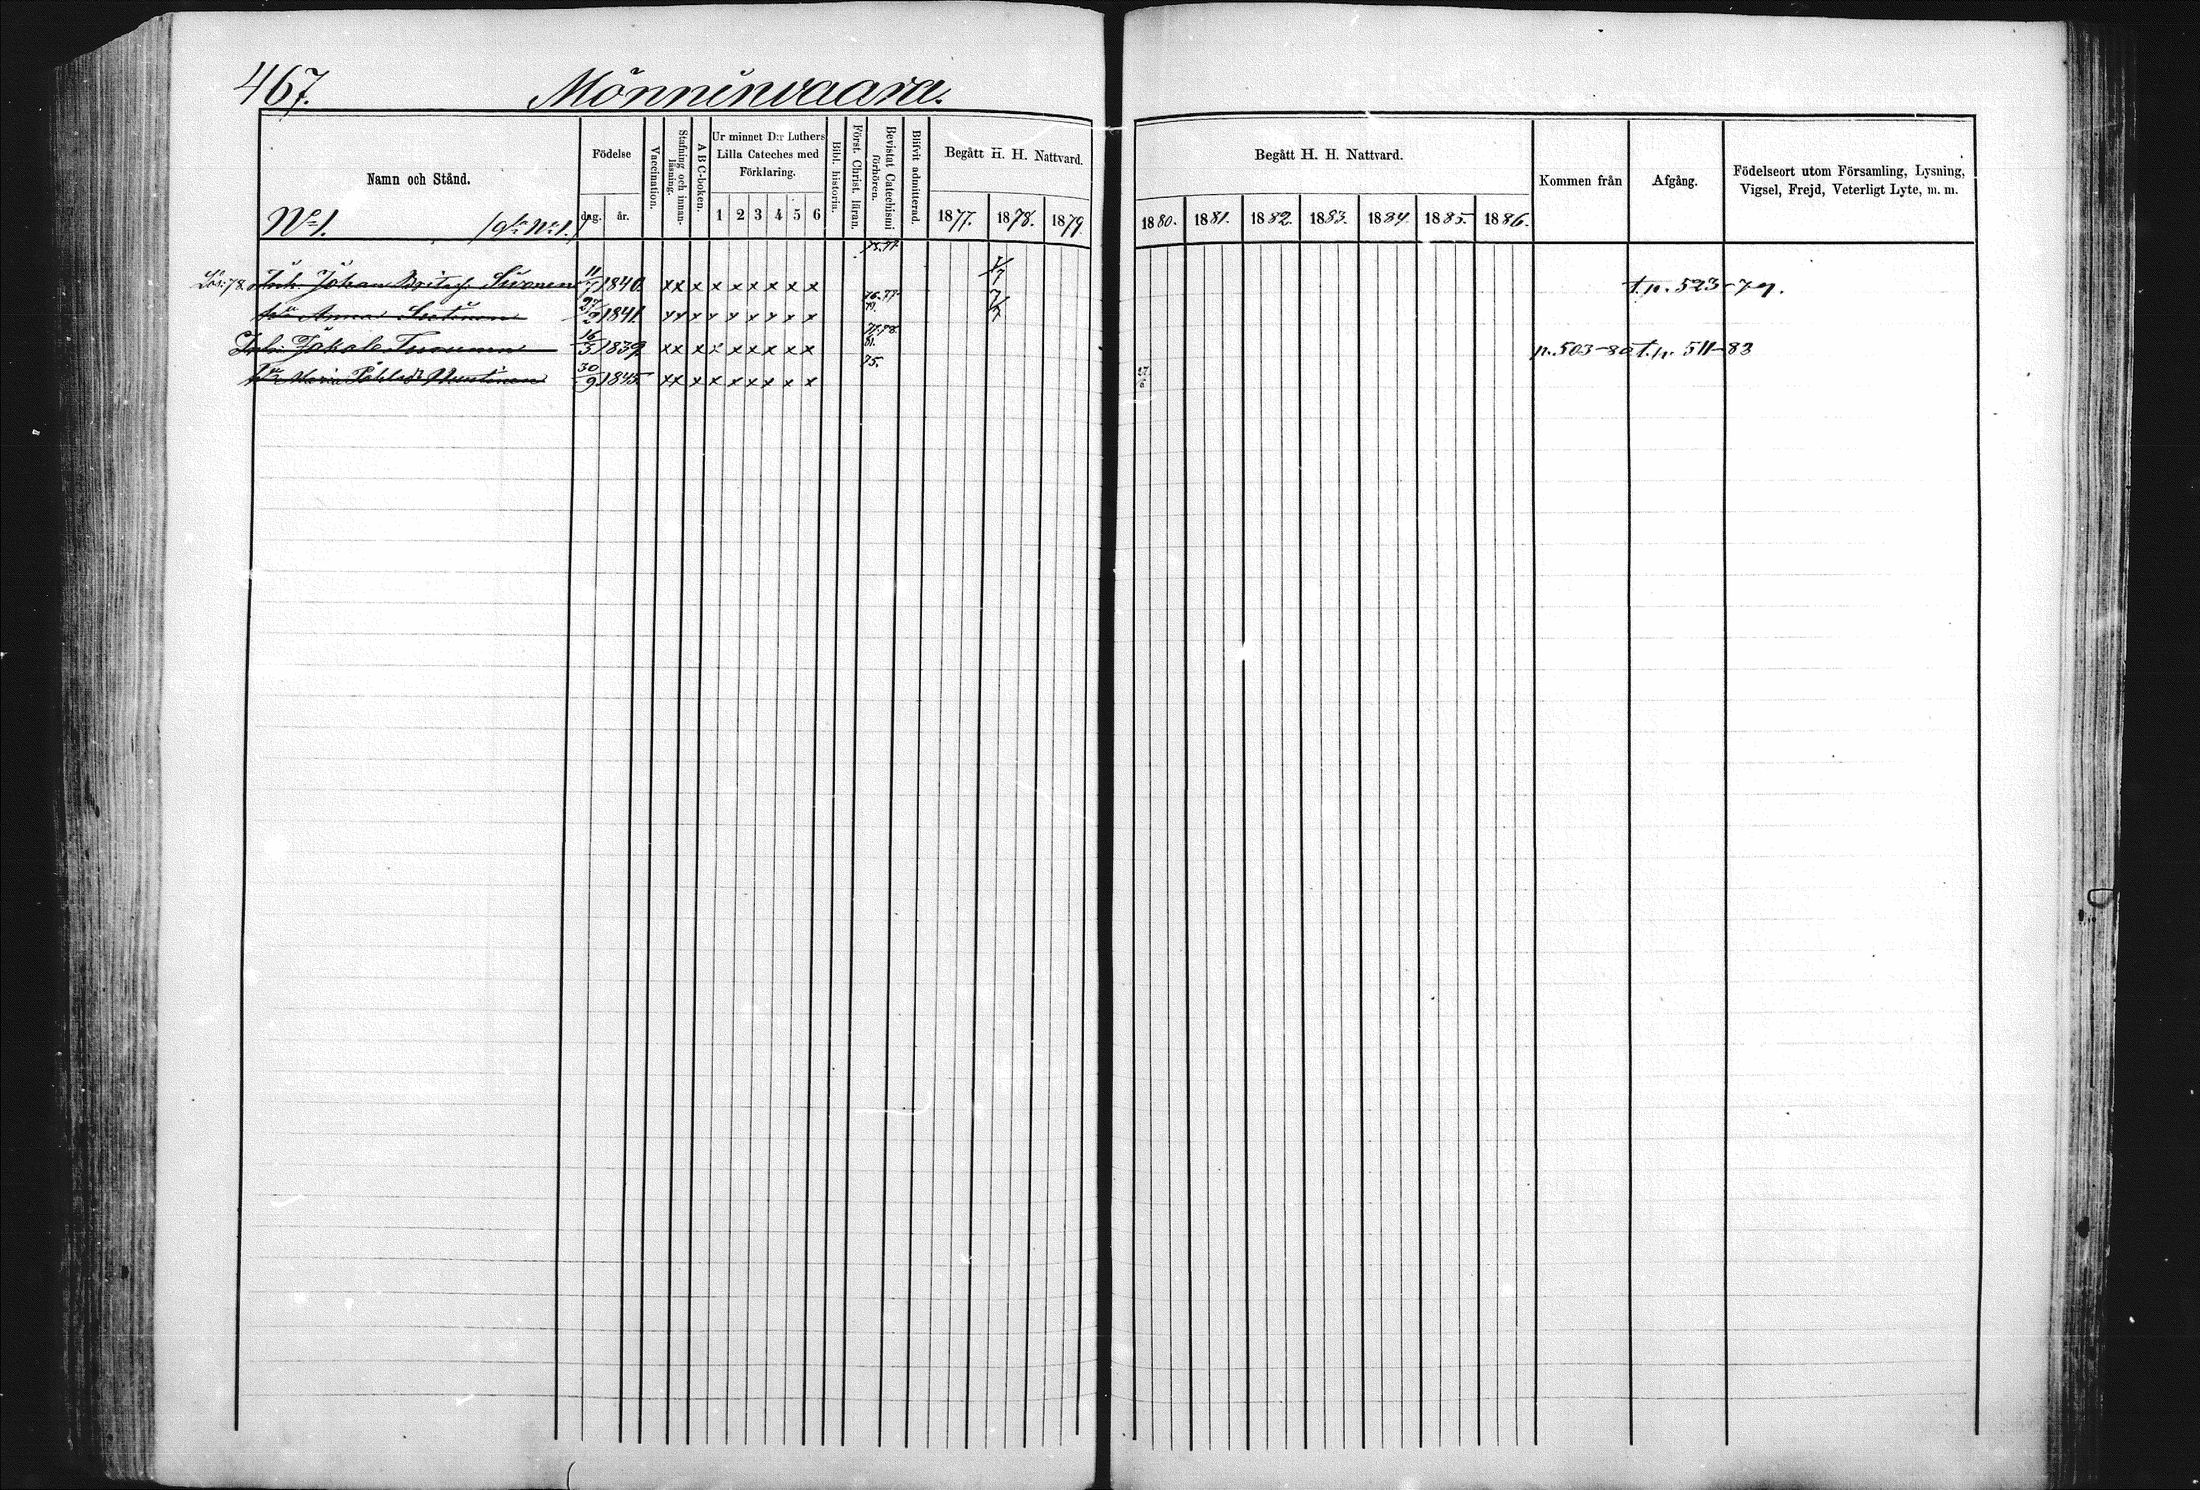 467.
Mönninvaara.
Namn och Stånd.
Födelse
dag.
år.
Vaccination.
Stafning och innan-läsning.
A B C-boken.
Ur minnet D:r Luthers
Lilla Cateches med
Förklaring.
1 2 3 4 5 6
Bibl. historia.
Först. Christ. läran.
Bevistat Catechismi förhören.
Blifvit admitterad.
Begått H. H. Nattvard.
1877. 1878. 1879.
Begått H. H. Nattvard.
1880. 1881. 1882. 1883. 1884. 1885. 1886.
Kommen från
Afgång.
Födelseort utom Församling, Lysning,
Vigsel, Frejd, Veterligt Lyte, m. m.
No 1.
75.77.
Johan 11/7 1840. x x x x x x x x x x 1/7 t. p. 523-79.
Anna 27/2 1841. x x x x x x x x x x 7/7
77.78. 81.
Jakob 16/3 1839 x x x x x x x x x x p. 503-80 t. p. 511-83
75.
Maria 30/9 1845 x x x x x x x x x x 27/6